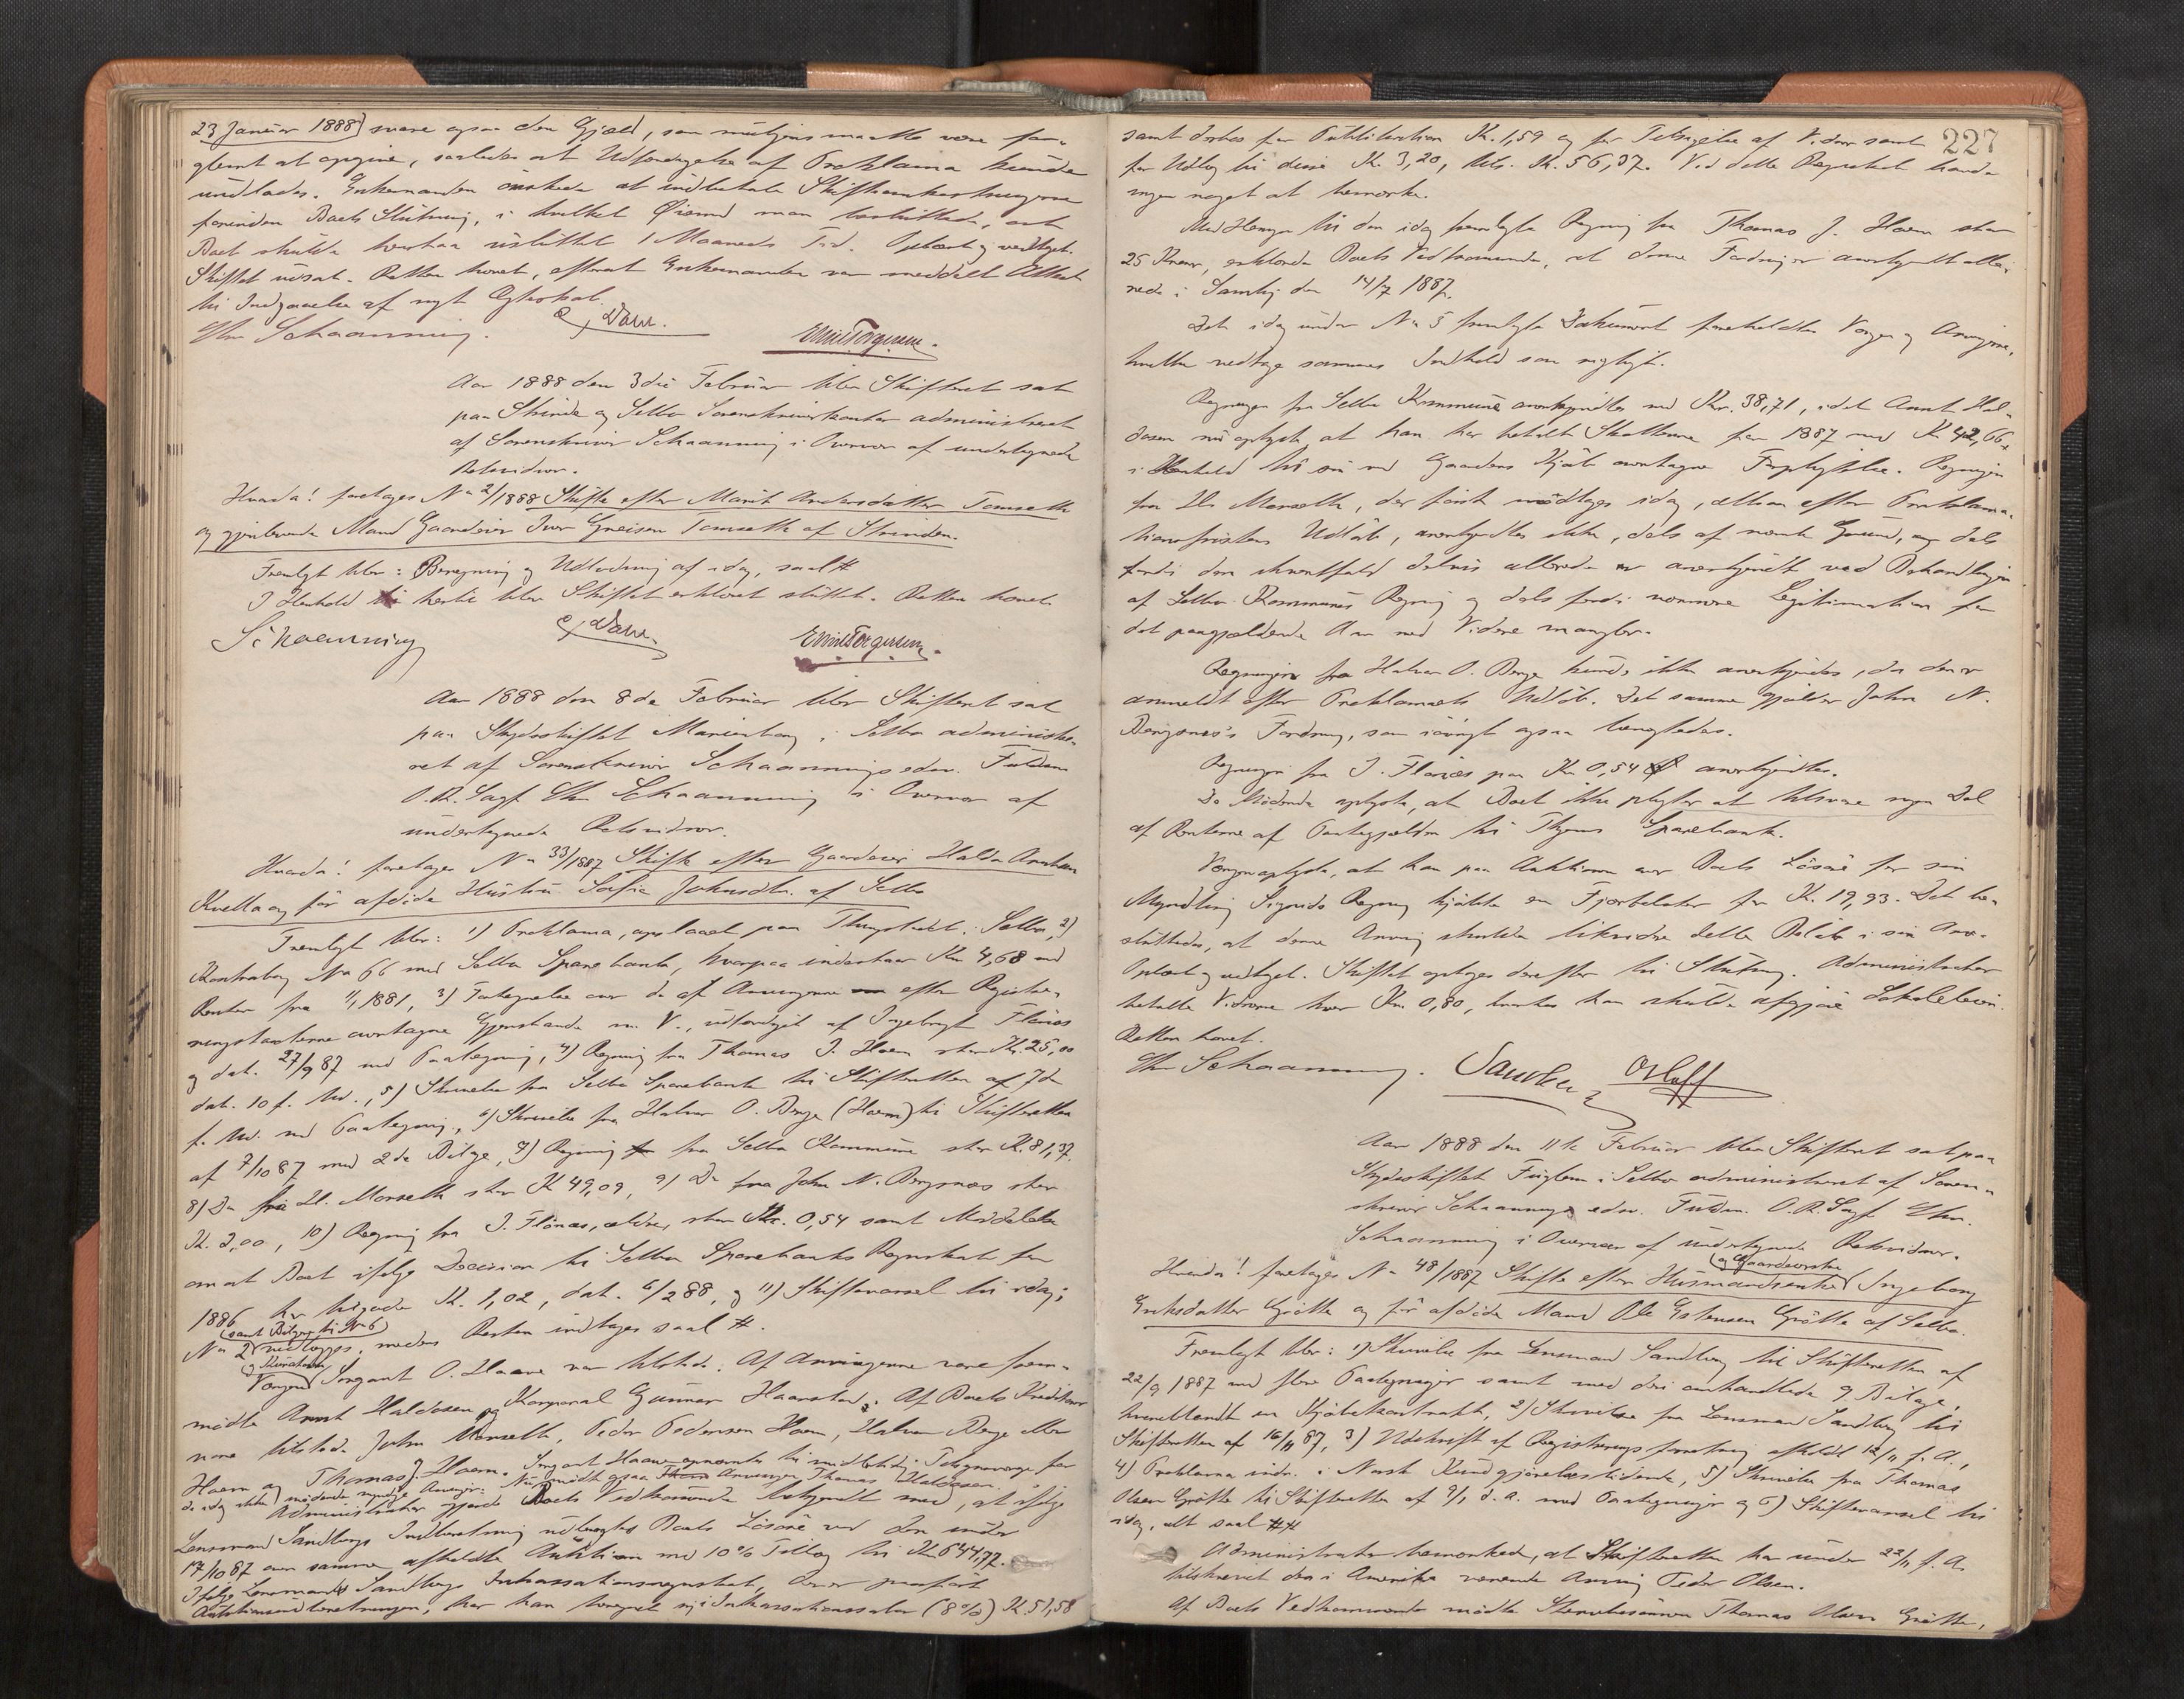 23 Januar 1888) svare ogsaa den Gjæld, som muligens maatte være for-
glemt at opgive, saaledes at Udfærdigelse af Proklama kunde
undlades. Enkemanden ønskede at indbetale Skifteomkostningerne
forinden Boets Slutning, i hvilket Øiemed man besluttede, at
Boet skulde beroa uslüttet 1 Maaneds Tid. Oplæst og vedtaget.
Skiftet udsat. Retten hævet, efterat Enkemanden var meddelt Attest
til Indgaaelse af nyt Ægteskab.
Chr Schaanning. Dahl. Emil Torgersen.
Aar 1888 den 3die Februar blev Skifteret sat
paa Strinde og Selbu Sorenskriverkontor administreret
af Sorenskriver Schaanning i Overvær af undertegnede
Retsvidner.
Hvorda! foretages No 2/1888 Skifte efter Marit Andersdatter Tomseth
og gjenlevende Mand Gaardeier Iver Tomseth af Strinden.
Fremlagt blev: Beregning og Udlodning af idag, saal #
I Henhold til hertil blev Skiftet erklæret sluttet. Retten hævet.
Schaanning Dahl. Emil Torgersen.
Aar 1888 den 8de Februar blev Skifteret sat
paa Skydsskiftet Marienborg i Selbu administre-
ret af Sorenskriver Schaannings edsv. Fuldm.
O.R. Sagf. Chr Schaanning i Overvær af
undertegnede Retsvidner.
Hvorda! foretages No 33/1887 Skifte efter Gaardeier Haldo Arntsen
Kvello og før afdøde Hustru Sofie Johnsdtr. af Selbu
Fremlagt blev: 1) Proklama, opslaaet paa Thingstedet i Selbu, 2)
Kontrabog No 66 med Selbu Sparebank, hvorpaa indestaar Kr 4,68 med
Renter fra 1/1 1881, 3) Fortegnelse over de af Arvingerne efter Registre-
ringstaxterne overtagne Gjenstande m. V., udfærdiget af Ingebrigt Flønæs
og dat. 27/9 87 med Paategning, 4) Regning fra Thomas J. Hoem stor Kr. 25,00
dat. 10 f. Md., 5) Skrivelse fra Selbu Sparebank til Skifteretten af 7de
f. Md. med Paategning, 6) Skrivelse fra Halvor O. Berge (Hoem) til Skifteretten
af 7/10 87 med 2de Bilage, 7) Regning fra Selbu Kommune stor Kr. 81,37.
8) Do fra Ol. Morseth stor Kr 49,09, 9) Do fra John N. Bergsnæs stor
Kr. 2,00, 10) Regning fra J. Flønæs, ældre, stor Kr. 0,54 samt Meddelelse
om at Boet ifølge Decision til Selbu Sparebanks Regnskab for
1886 har tilgode Kr. 1,02, dat. 6/2 88, og 11) Skiftevarsel til idag;
(samt Bilage til No 6)
No 2 vedlægges, medens Resten indtages saal #.
og Kurator
Vergen Sergeant O. Haave var tilstede. Af Arvingerne vare frem-
mødte Arnt Haldosen og Korporal Gunnar Haarstad. Af Boets Kreditorer
vare tilstede John Morseth, Peder Pedersen Hoem, Halvor Berge eller
Hoem og Thomas J. Hoem. Sergeant Haave opnævntes til midlertidig Tilsynsverge for
de idag ikke mødende myndige Arvinger. Nu mødte ogsaa Arvingen Thomas Haldosen.
Administrator gjorde Boets Vedkommende bekjendt med, at ifølge
Lensmand Sandbergs Indberetning udbragtes Boets Løsøre ved den under
17/10 87 over samme afholdte Auktion med 10% Tillæg til Kr 644,72.
Ifølge Lensmand Sandbergs Inkassationsregnskab, der er paaført
Auktionsindberetningen, har han beregnet sig i Inkassationssalær (8%) Kr. 51,58
227
samt derhos for Publikation Kr. 1,59 og for Tilsigelse af Vidner samt
for Udlæg til disse Kr. 3,20, tils. Kr. 56,37. Ved dette Regnskab havde
ingen noget at bemærke.
Med Hensyn til den idag fremlagte Regning fra Thomas J. Hoem stor
25 Kroner, erklærede Boets Vedkommende, at denne Fordring er anerkjendt alle-
rede i Samling den 14/7 1887.
Det idag under No 5 fremlagte Dokument foreholdtes Verger og Arvinger,
hvilke vedtoge sammes Indhold som rigtigt.
Regningen fra Selbu Kommune anerkjendtes med Kr. 38,71, idet Arnt Hal-
dosen nu oplyste at han har betalt Skatterne for 1887 med Kr 42,66,
i Henhold til sin ved Gaardens Kjøb overtagne Forpligtelse. Regningen
fra Ol. Morseth, der først modtages idag, altsaa efter Proklama-
tionsfristens Udløb, anerkjendtes ikke, dels af nævnte Grund, og dels
fordi den ihvertfald delvis allerede er anerkjendt ved Behandlingen
af Selbu Kommunes Regning og dels fordi nærmere Legitimation for
det paagjældende Aar med Videre mangler.
Regningen fra Halvor O. Berge kunde ikke anerkjendes, da den er
anmeldt efter Proklamaets Udløb. Det samme gjælder John N.
Bergsnæs's Fordring, som iøvrigt ogsaa benegtedes.
Regningen fra J. Flønæs paa Kr 0,54 anerkjendtes.
De Mødende oplyste, at Boet ikke pligter at tilsvare nogen Del
af Renterne af Pantegjælden til Thyens Sparebank.
Vergen oplyste, at han paa Auktionen over Boets Løsøre for sin
Myndling Sigrids Regning kjøbte en Fjerbolster for Kr. 19,93. Det be-
sluttedes, at denne Arving skulde likvidere dette Beløb i sin Arv.
Oplæst og vedtaget. Skiftet optoges derefter til Slutning. Administrator
betalte Vidnerne hver Kr. 0,80, hvorhos han skulde afgjøre Lokaleleien.
Retten hævet.
Chr Schaanning. Sandberg OHoff
Aar 1888 den 11te Februar blev Skifteret sat paa
Skydsskiftet Fuglem i Selbu administreret af Soren-
skriver Schaannings edsv. Fuldm. O.R. Sagf Chr.
Schaanning i Overvær af undertegnede Retsvidner.
og Gaardeierske
Hvorda! foretages No 48/1887 Skifte efter Husmandsenke Ingeborg
Eriksdatter Grøtte og før afdøde Mand Ole Estensen Grøtte af Selbu.
Fremlagt blev: 1) Skrivelse fra Lensmand Sandberg til Skifteretten af
22/9 1887 med flere Paategninger samt med deri omhandlede 9 Bilage,
hvoriblandt en Kjøbekontrakt, 2) Skrivelse fra Lensmand Sandberg til
Skifteretten af 16/11 87, 3) Udskrift af Registreringsforretning afholdt 12/11 f. A.,
4) Proklama indr. i Norsk Kundgjørelsestidende, 5) Skrivelse fra Thomas
Olsen Grøtte til Skifteretten af 9/1 d. A. med Paategninger og 6) Skiftevarsel til
idag, alt saal ##
Administrator bemærkede, at Skifteretten har under 22/11 f. A.
tilskrevet den i Amerika værende Arving Peder Olsen.
Af Boets Vedkommende mødte Stervbosønnen Thomas Olsen Grøtte,